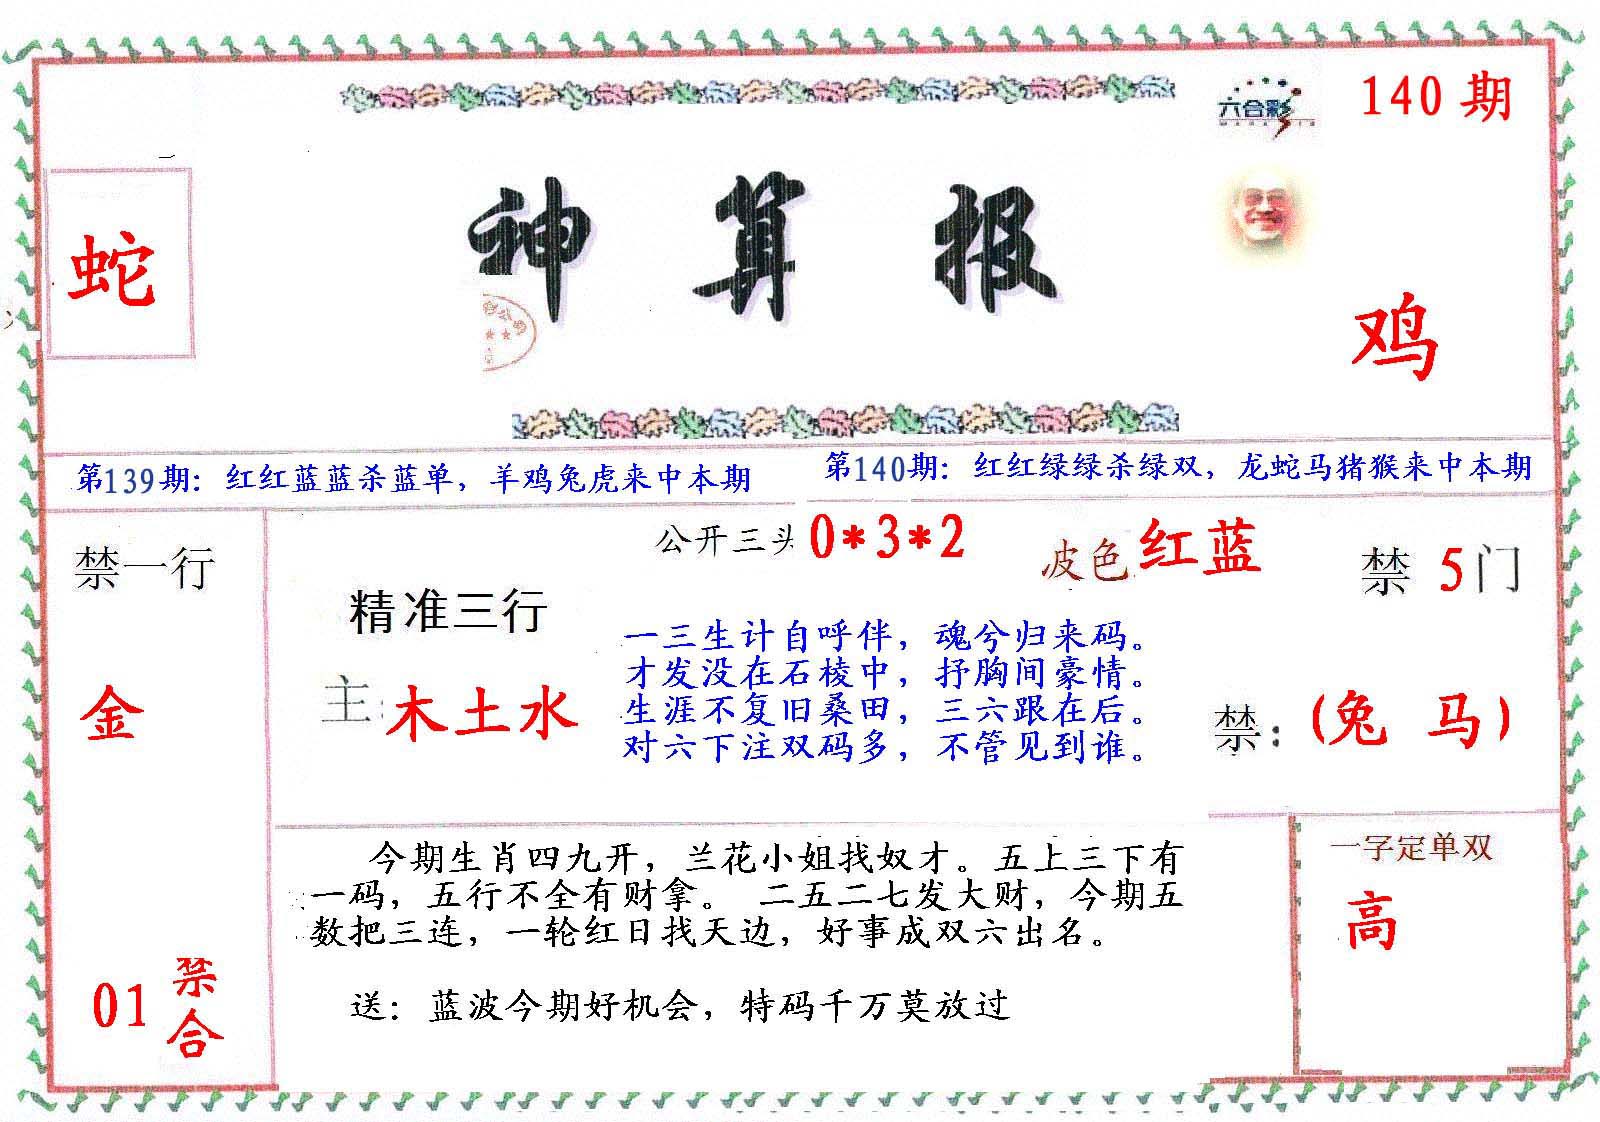 六合彩
140期
蛇
神算报
鸡
第139期：红红蓝蓝杀蓝单，羊鸡兔虎来中本期
第140期：红红绿绿杀绿双，龙蛇马猪猴来中本期
禁一行
金
01禁合
公开三头0*3*2
波色红蓝
禁5门
精准三行
主:木土水
一三生计自呼伴，魂兮归来码。
才发没在石棱中，抒胸间豪情。
生涯不复旧桑田，三六跟在后。
对六下注双码多，不管见到谁。
禁:(兔 马)
今期生肖四九开，兰花小姐找奴才。五上三下有
一码，五行不全有财拿。 二五二七发大财，今期五
数把三连，一轮红日找天边，好事成双六出名。
送：蓝波今期好机会，特码千万莫放过
一字定单双
高